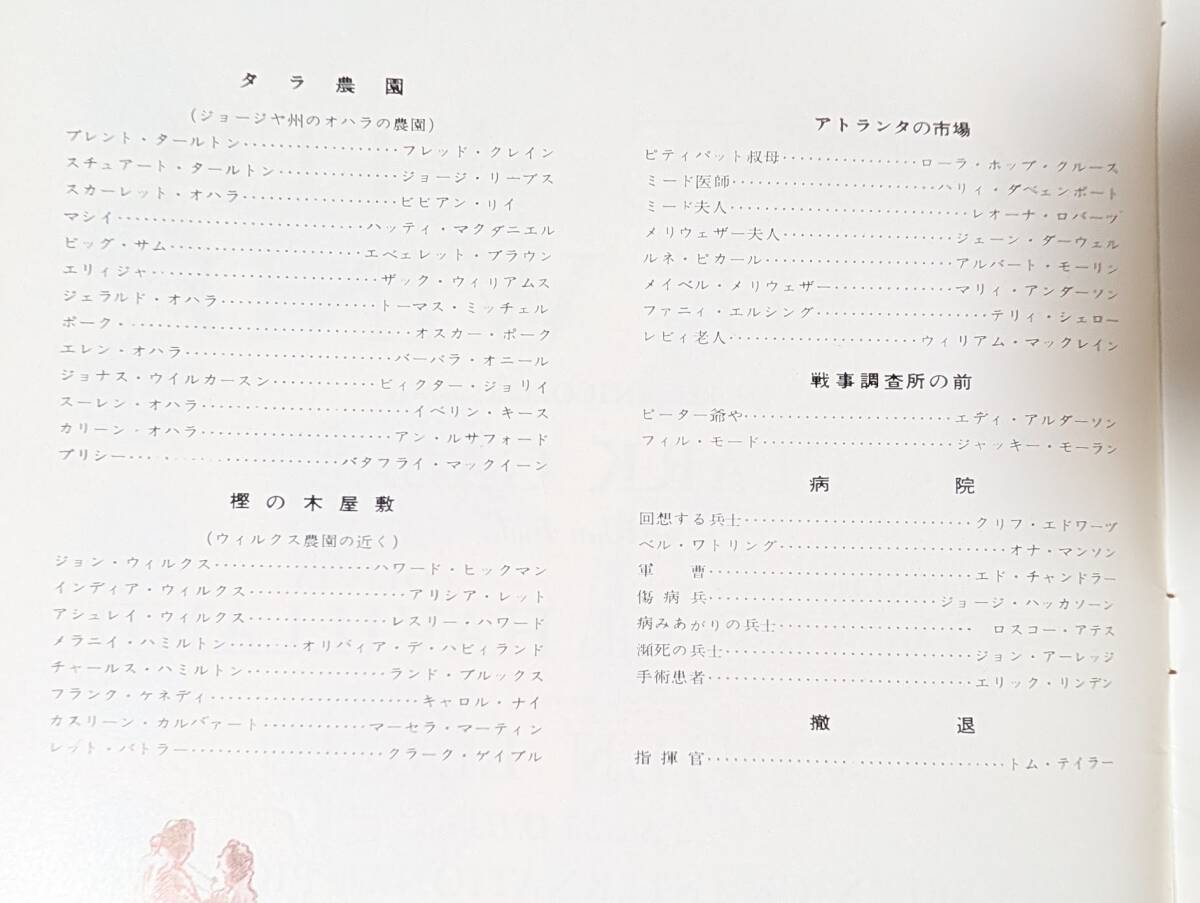 タラ農園
(ジョージヤ州のオハラの農園)
ブレント・タールトン………………フレッド・クレイン
スチュアート・タールトン……………ジョージ・リーブス
スカーレット・オハラ………………ビビアン・リイ
マシイ………………………ハッティ・マクダニエル
ビッグ・サム…………………エベェレット・ブラウン
エリィジャ……………………ザック・ウィリアムス
ジェラルド・オハラ………………トーマス・ミッチェル
ポーク……………………………オスカー・ポーク
エレン・オハラ……………………バーバラ・オニール
ジョナス・ウイルカースン…………ビィクター・ジョリイ
スーレン・オハラ……………………イベリン・キース
カリーン・オハラ…………………アン・ルサフォード
プリシー……………………バタフライ・マックイーン
樫の木屋敷
(ウィルクス農園の近く)
ジョン・ウィルクス………………ハワード・ヒックマン
インディア・ウィルクス………………アリシア・レット
アシュレイ・ウィルクス……………レスリー・ハワード
メラニイ・ハミルトン………オリバィア・デ・ハビィランド
チャールス・ハミルトン……………ランド・ブルックス
フランク・ケネディ……………………キャロル・ナイ
カスリーン・カルバァート…………マーセラ・マーティン
レット・バトラー…………………クラーク・ゲイブル
アトランタの市場
ピティパット叔母……………ローラ・ホップ・クルース
ミード医師……………………ハリィ・ダベェンポート
ミード夫人………………………レオーナ・ロバーヅ
メリウェザー夫人………………ジェーン・ダーウェル
ルネ・ピカール…………………アルバート・モーリン
メイベル・メリウェザー……………マリィ・アンダーソン
ファニィ・エルシング………………テリィ・シェロー
レビィ老人…………………ウィリアム・マックレイン
戦事調査所の前
ピーター爺や……………………エディ・アルダーソン
フィル・モード…………………ジャッキー・モーラン
病院
回想する兵士………………………クリフ・エドワーヅ
ベル・ワトリング………………………オナ・マンソン
軍曹……………………………エド・チャンドラー
傷病兵………………………ジョージ・ハッカソーン
病みあがりの兵士…………………ロスコー・アテス
瀕死の兵士………………………ジョン・アーレッジ
手術患者…………………………エリック・リンデン
撤退
指揮官……………………………トム・テイラー